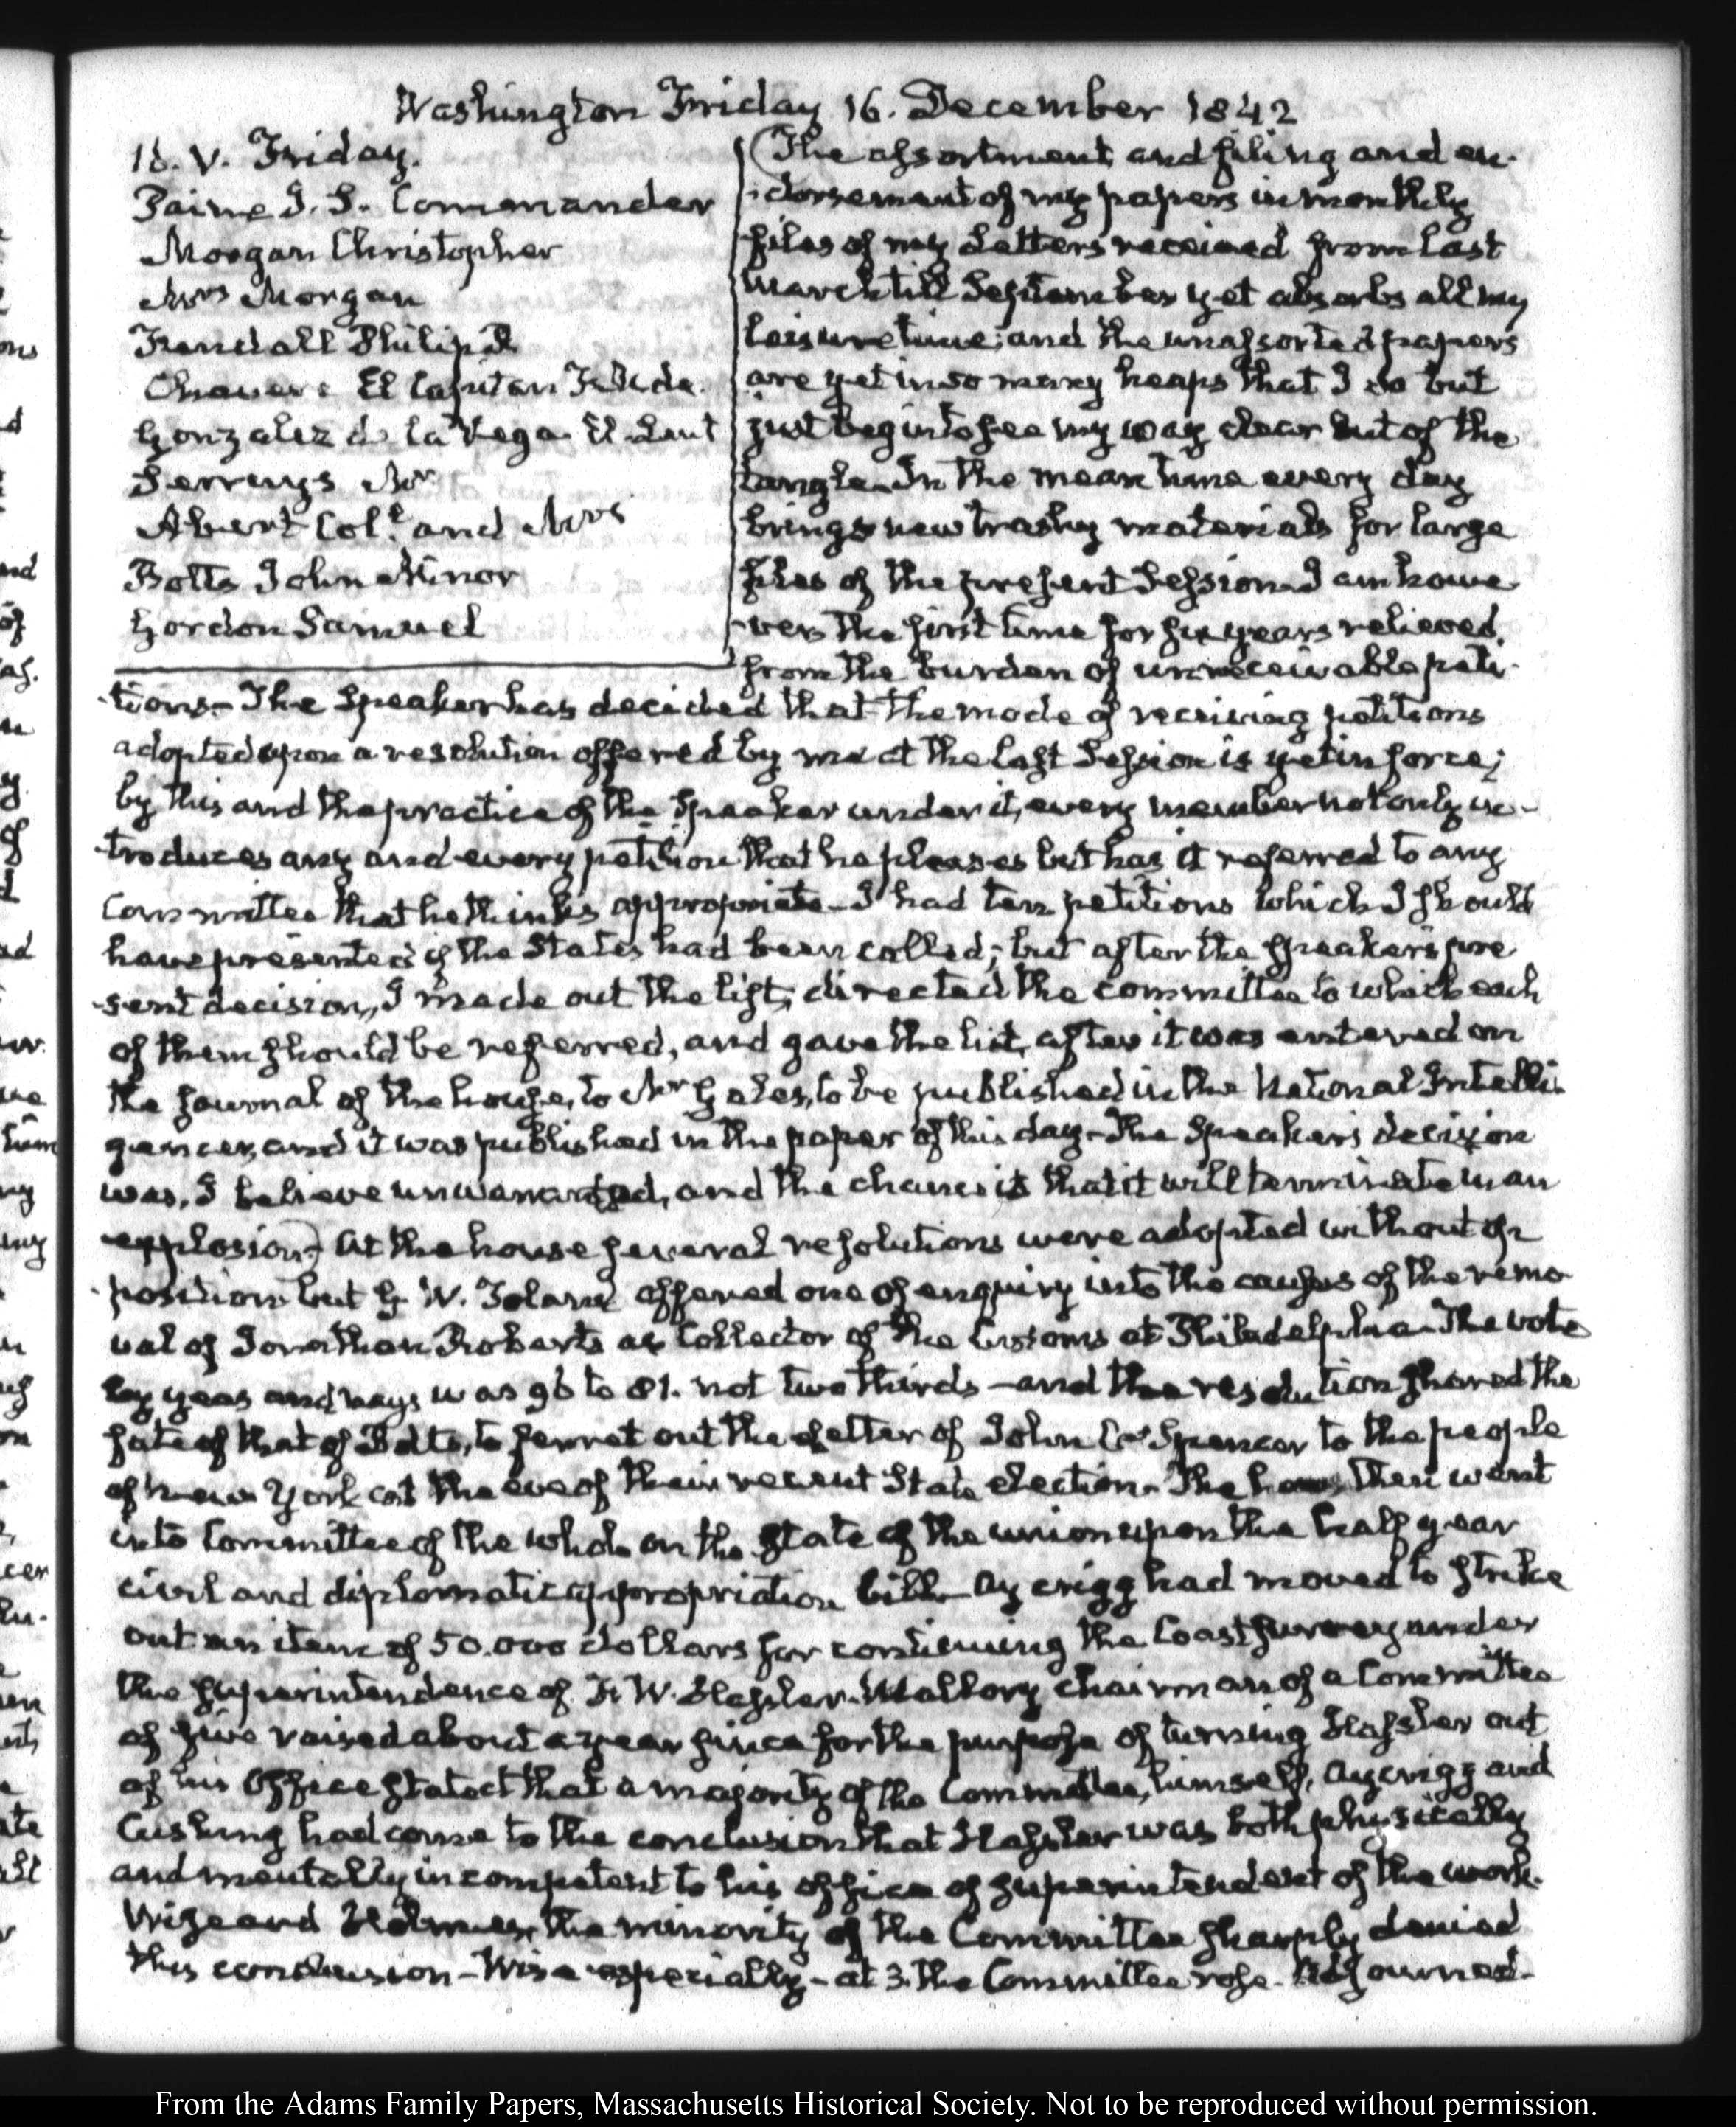 Washington Friday 16. December 1842
16. V. Friday.
Paine J. S. Commander
Morgan Christopher
Mrs Morgan
Frendall Philip R
El Capitan
Gonzalez de la Vega El Lieut
Serruys Mr
Abert Col.l and Mrs
Botts John Minor
Gordon Samuel
The assortment and filing and en-
-dorsement of my papers in monthly
files of my Letters received from last
March till September yet absorbs all my
leisure time; and the unassorted papers
are yet in so many heaps that I do but
just begin to see my way clear out of the
tangle. In the mean time every day
brings new trashy materials for large
files of the present Session. I am howe
-ver the first time for six years relieved
from the burden of unreceivable peti-
-tions. The Speaker has decided that the mode of receiving petitions
adopted upon a resolution offered by me at the last Session is yet in force;
by this and the practice of the Speaker under it, every member not only in-
-troduces any and every petition that he pleases but has it referred to any
Committee that he thinks appropriate. I had ten petitions which I should
have presented if the States had been called; but after the Speaker's pre
-sent decision, I made out the list, directed the committee to which each
of them should be referred, and gave the list, after it was entered on
the journal of the house, to Mr Gales, to be published in the National Intelli-
gencer, and it was published in the paper of this day. The Speaker's decision
was, I believe unwarranted, and the chance is that it will terminate in an
explosion) At the house several resolutions were adopted without op
-position but G W. Toland offered one of enquiry into the causes of the remo
val of Jonathan Roberts as Collector of the Customs at Philadelphia. The vote
by yeas and nays was 96 to 81. not two thirds—and the resolution shared the
fate of that of Botts, to ferret out the Letter of John C. Spencer to the people
of New York at the eve of their recent State election. The house then went
into Committee of the whole on the state of the union upon the half year
civil and diplomatic appropriation bill. Aycrigg had moved to strike
out an item of 50.000 dollars for continuing the Coast survey under
the superintendence of F. W. Hassler. Mallory chairman of a Committee
of five raised about a year since for the purpose of turning Hassler out
of his Office stated that a majority of the Committee, himself, Aycrigg and
Cushing had come to the conclusion that Hassler was both physically
and mentally incompetent to his office of superintendent of the work.
Wise and Holmes, the minority of the Committee sharply denied
this conclusion—Wise especially—at 3. the Committee rose. Adjourned.
From the Adams Family Papers, Massachusetts Historical Society. Not to be reproduced without permission.